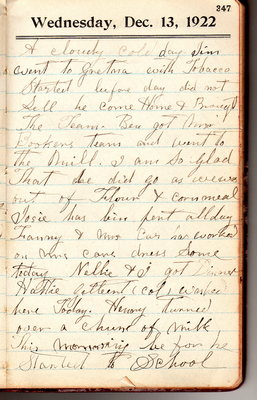 347
Wednesday, Dec. 13, 1922
A cloudy cold day Jim
went to Gretna with Tobacco
Started before day did not
Sell he come Home & Brought
The Team. Ben got Mr
team and went to
the Mill. I am So Glad
That he did go as we was
out of Flour & cornmeal
Josie has bin pent all day
Fanny & Mrs worked
on Mrs dress Some
today. Nellie & I got Dinner
Hattie (col) washed
here Today. Henry turned
over a churn of milk
This morning before he
Started to School